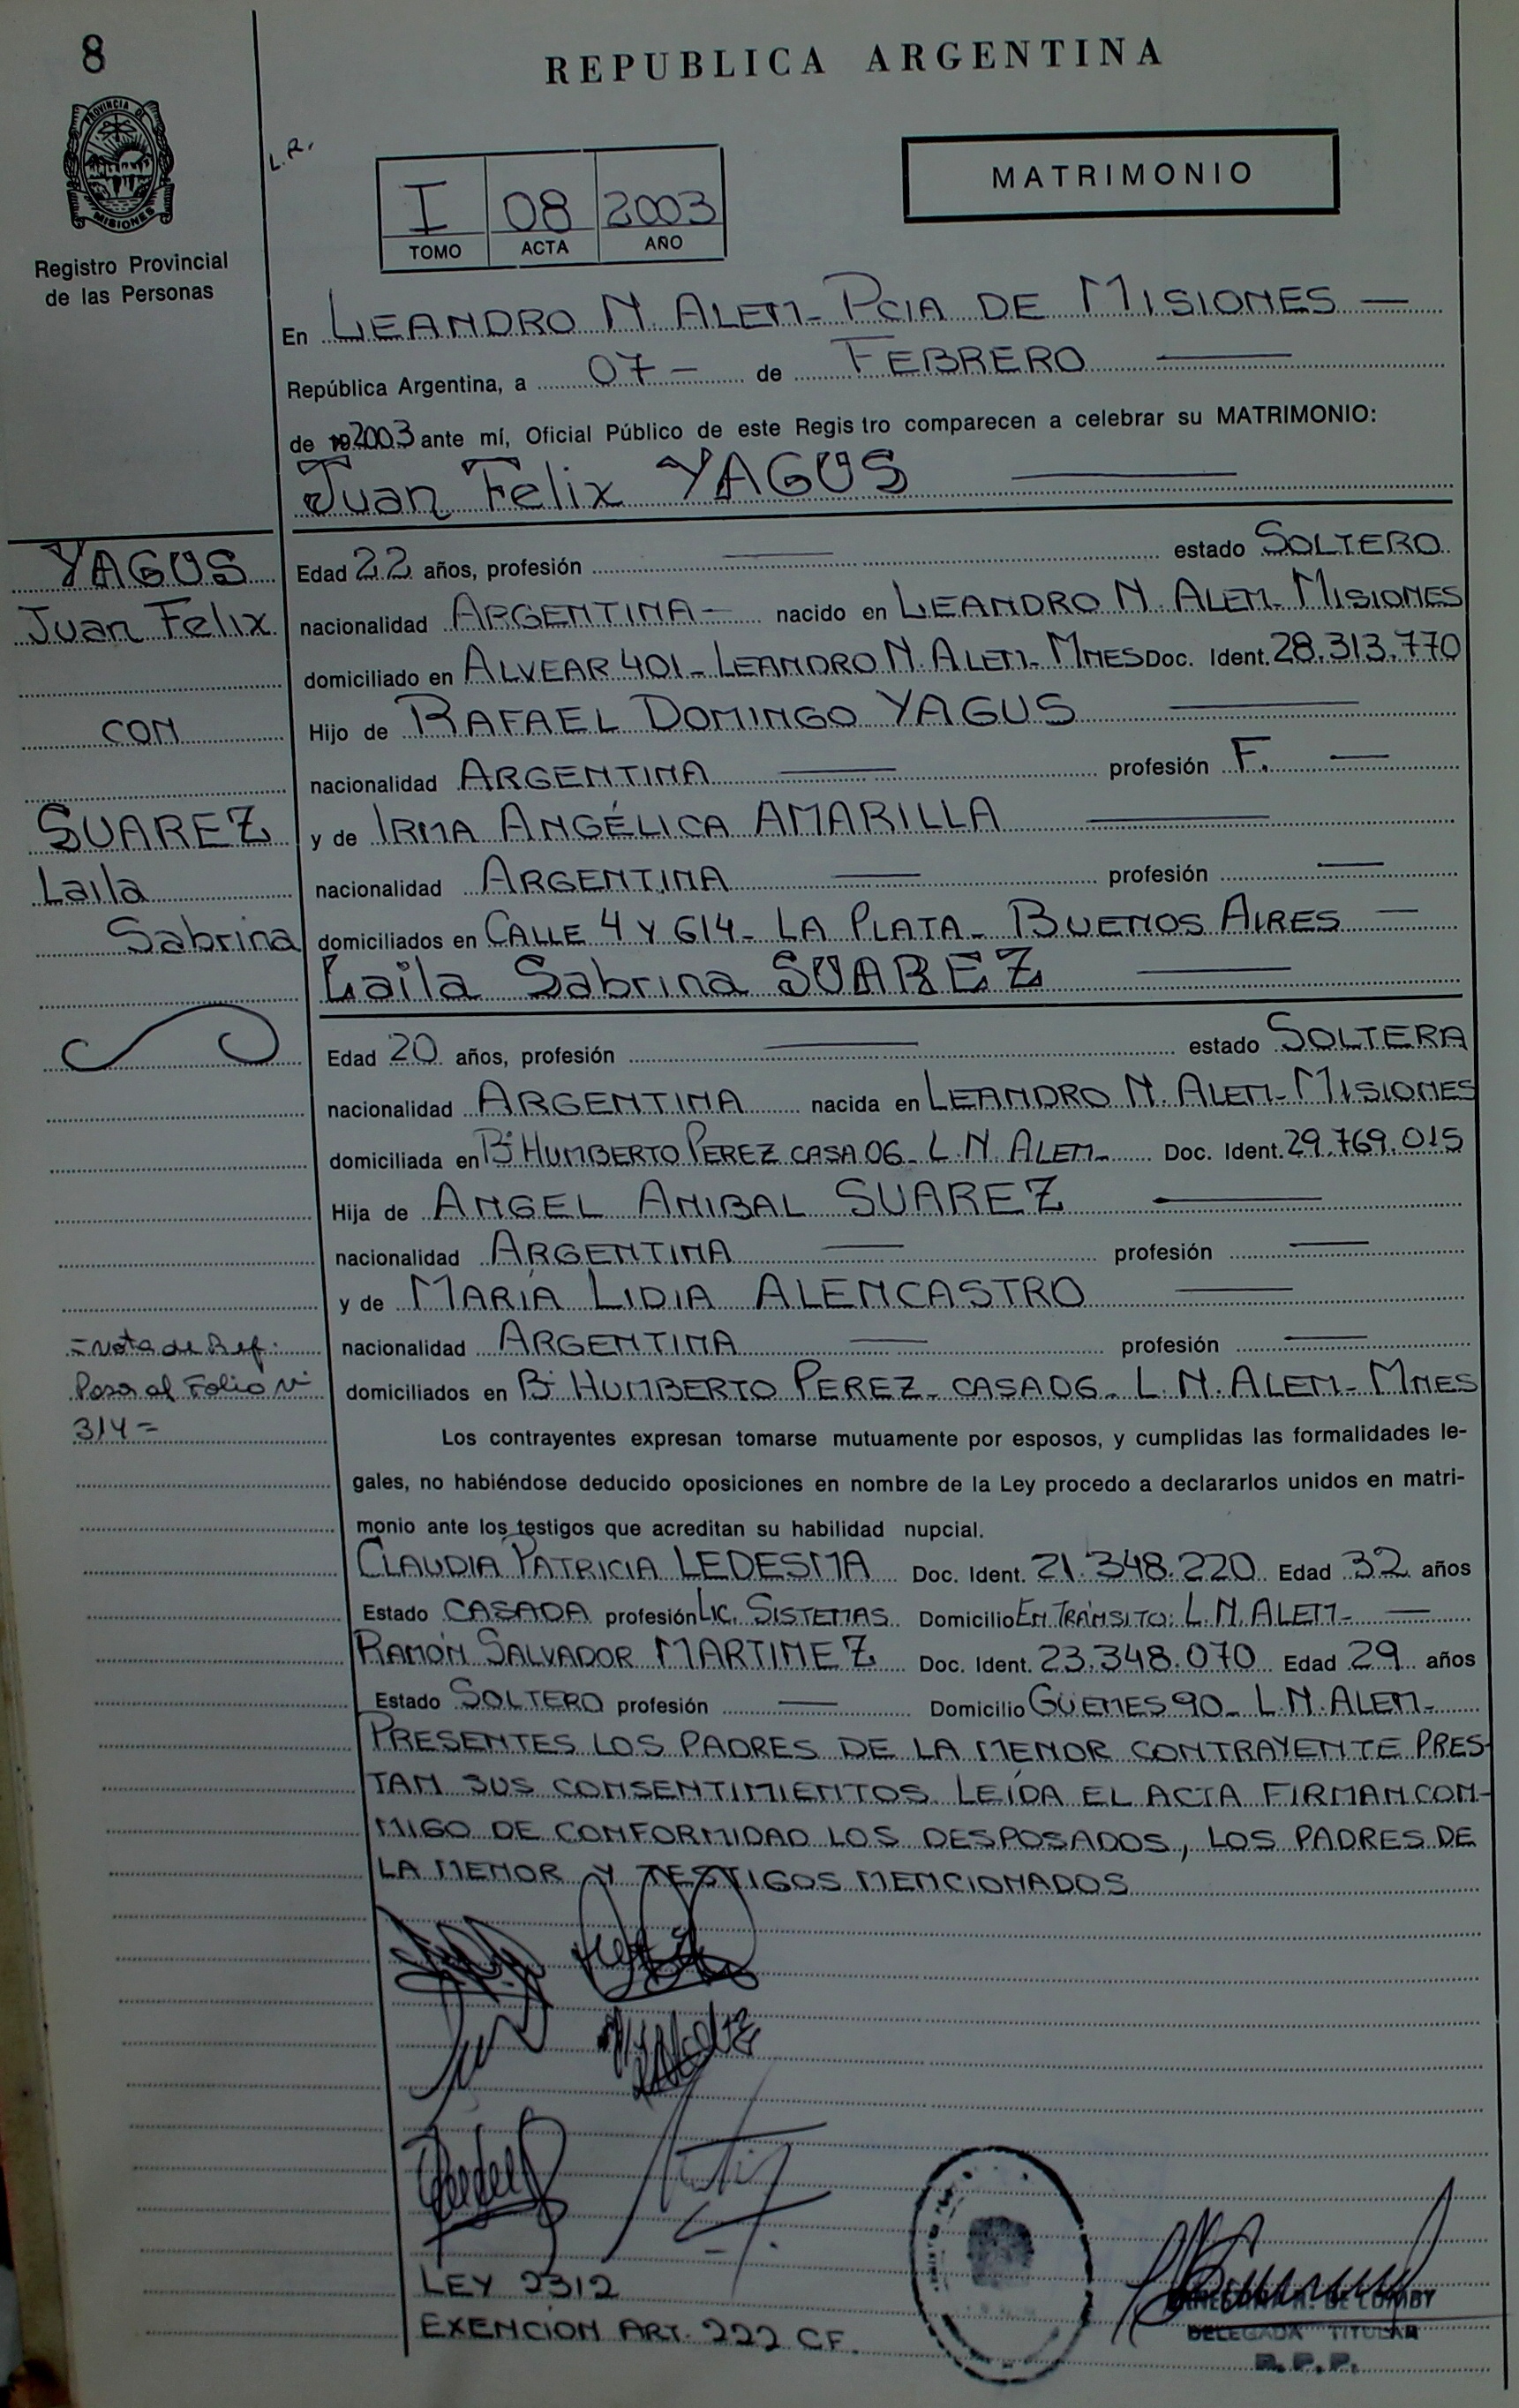 8
REPUBLICA ARGENTINA
PROVINCIA DE
MISIONES
Registro Provincial
de las Personas
L.R.
I 08 2003
TOMO ACTA AÑO
MATRIMONIO
En LEANDRO N. ALEM - PCIA DE MISIONES —
República Argentina, a 07 - de FEBRERO —
de 19 2003 ante mí, Oficial Público de este Registro comparecen a celebrar su MATRIMONIO:
Juan Felix YAGUS —
YAGUS
Juan Felix
CON
SUAREZ
Laila
Sabrina
Edad 22 años, profesión — estado SOLTERO
nacionalidad ARGENTINA — nacido en LEANDRO N. ALEM - MISIONES
domiciliado en ALVEAR 401 - LEANDRO N. ALEM - MNES Doc. Ident. 28.313.770
Hijo de RAFAEL DOMINGO YAGUS —
nacionalidad ARGENTINA — profesión F. —
y de IRMA ANGÉLICA AMARILLA —
nacionalidad ARGENTINA — profesión —
domiciliados en CALLE 4 Y 614 - LA PLATA - BUENOS AIRES —
Laila Sabrina SUAREZ —
Edad 20 años, profesión — estado SOLTERA
nacionalidad ARGENTINA nacida en LEANDRO N. ALEM - MISIONES
domiciliada en B° HUMBERTO PEREZ CASA 06 - L.N. ALEM - Doc. Ident. 29.769.015
Hija de ANGEL ANIBAL SUAREZ —
nacionalidad ARGENTINA — profesión —
y de MARÍA LIDIA ALENCASTRO —
nacionalidad ARGENTINA — profesión —
domiciliados en B° HUMBERTO PEREZ - CASA 06 - L.N. ALEM - MNES
= Nota de Ref:
Pasa al Folio N°
314 =
Los contrayentes expresan tomarse mutuamente por esposos, y cumplidas las formalidades le-
gales, no habiéndose deducido oposiciones en nombre de la Ley procedo a declararlos unidos en matri-
monio ante los testigos que acreditan su habilidad nupcial.
CLAUDIA PATRICIA LEDESMA Doc. Ident. 21.348.220 Edad 32 años
Estado CASADA profesión LIC. SISTEMAS Domicilio EN TRÁNSITO: L.N. ALEM - —
RAMÓN SALVADOR MARTINEZ Doc. Ident. 23.348.070 Edad 29 años
Estado SOLTERO profesión — Domicilio GÜEMES 90 - L.N. ALEM -
PRESENTES LOS PADRES DE LA MENOR CONTRAYENTE PRES-
TAN SUS CONSENTIMIENTOS. LEÍDA EL ACTA FIRMAN CON-
MIGO DE CONFORMIDAD LOS DESPOSADOS, LOS PADRES DE
LA MENOR Y TESTIGOS MENCIONADOS
LEY 2312
EXENCION ART. 222 CF.
DE LOMBY
DELEGADA TITULAR
R.P.P.